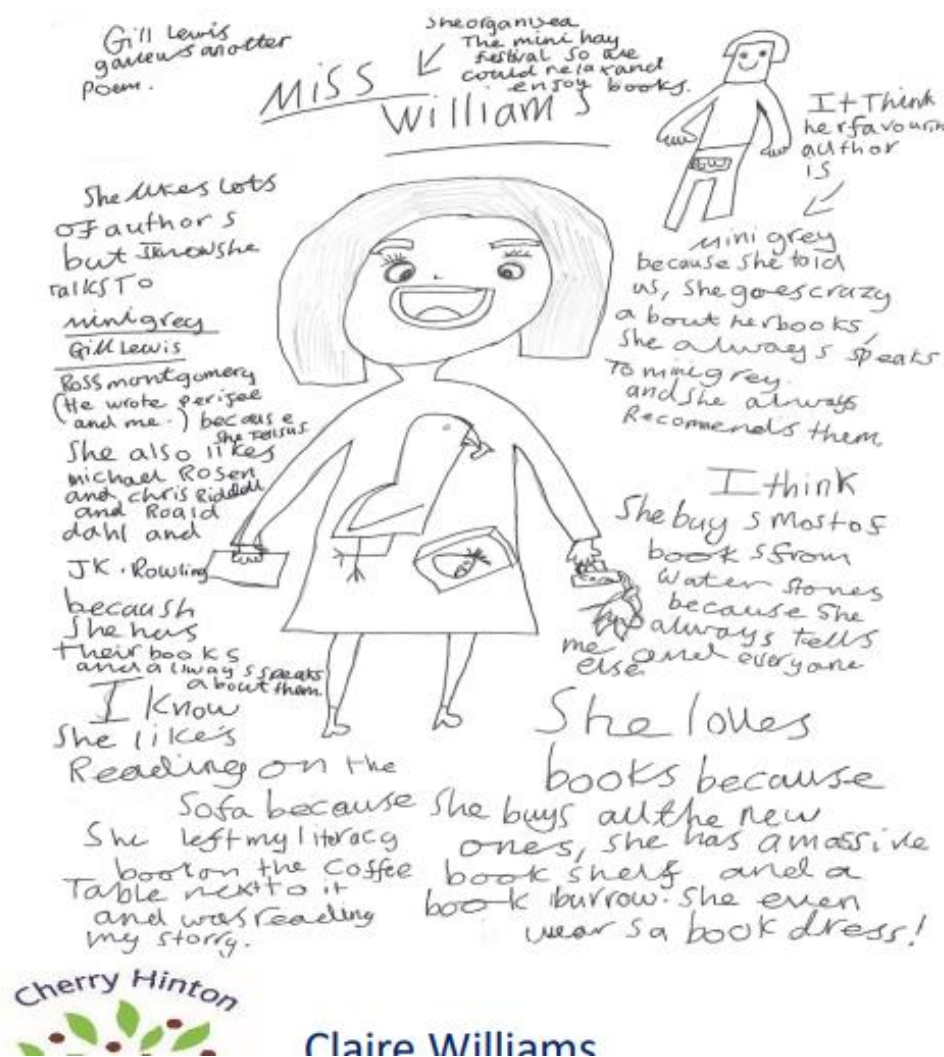 Gill Lewis
gave us another
Poem.
She organised
The mini hay
festival so we
could relax and
enjoy books.
Miss
William s
It Think
her favourite
author
is
mini grey
because she told
us, she goes crazy
about her books,
she always speaks
To mini grey.
and she always
Recommends them.
She likes lots
of author s
but I know she
talks To
mini grey
Gill Lewis
Ross montgomery
(He wrote perijee
and me.) because
she tells us
She also likes
michael Rosen
and chris Riddell
and Roald
dahl and
JK. Rowling
becaush
She has
their books
and always speaks
about them
I think
She buy s most of
book s from
Water stones
because she
always tells
me and everyone
else
I know
She likes
Reading on the
Sofa because
She left my literacy
book on the Coffee
Table next to it
and was reading
my storry.
She loves
books because
she buys all the new
ones, she has a massive
book shelf and a
book burrow. She even
wear s a book dress!
Cherry Hinton
Claire Williams